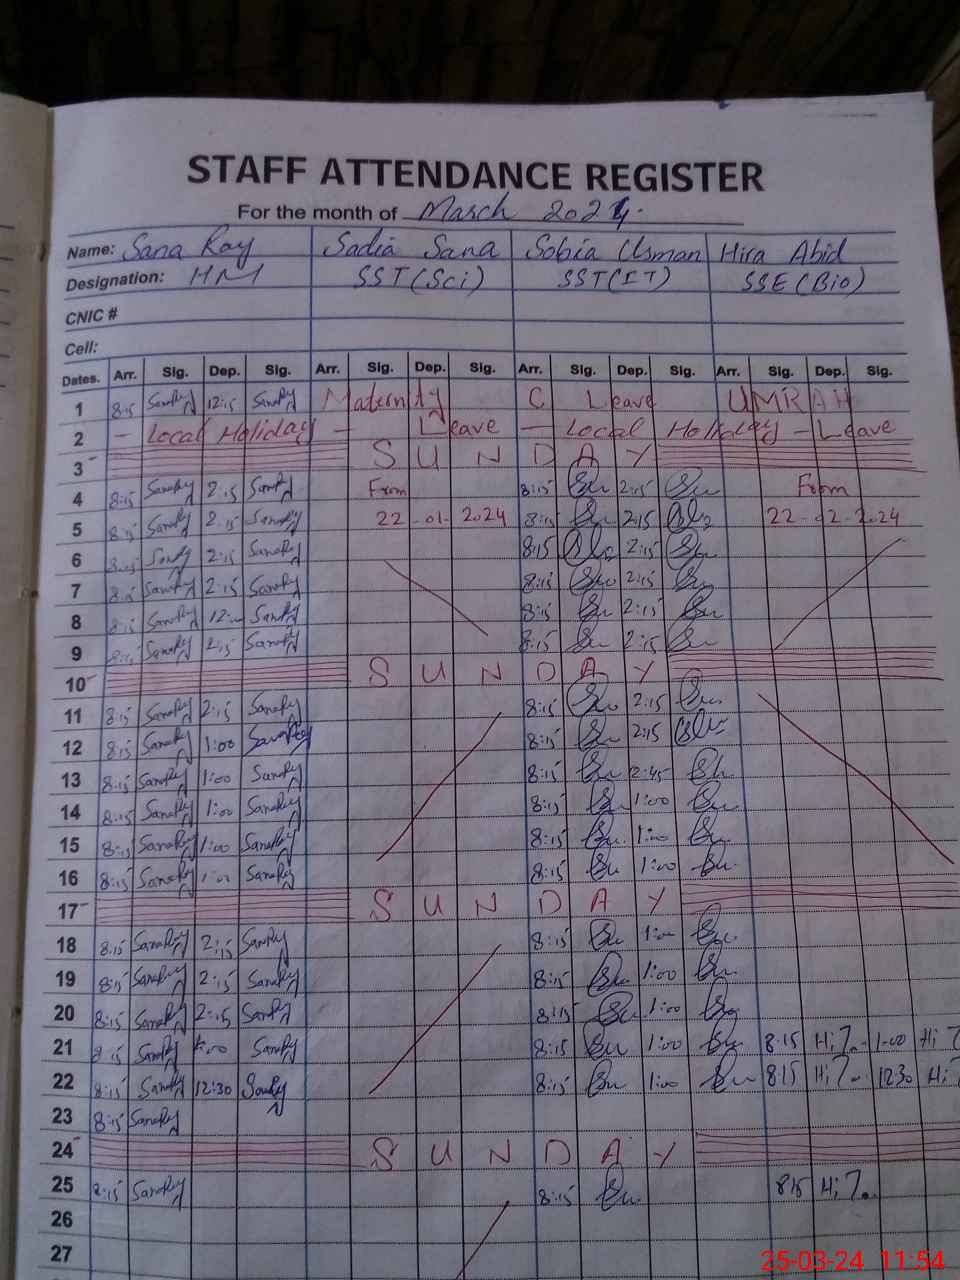 STAFF ATTENDANCE REGISTER
For the month of March 2024.
Name: Sana Ray Sadia Sana Sobia Usman Hira Abid
Designation: HM SST (Sci) SST (IT) SSE (Bio)
CNIC #
Cell:
Dates. Arr. Sig. Dep. Sig. Arr. Sig. Dep. Sig. Arr. Sig. Dep. Sig. Arr. Sig. Dep. Sig.
1 8:15 SanaRy 12:15 SanaRy Maternity C Leave UMRAH
2 - Local Holiday - Leave - Local Holiday - Leave
3 SUNDAY
4 8:15 SanaRy 2:15 SanaRy From 8:15 Su 2:15 Su From
5 8:15 SanaRy 2:15 SanaRy 22-01-2024 8:15 Su 2:15 22-02-2024
6 8:15 2:15 SanaRy 8:15 2:15 Su
7 8:15 SanaRy 2:15 SanaRy 8:15 Su 2:15 Su
8 8:15 SanaRy SanaRy 8:15 Su 2:15 Su
9 8:15 SanaRy 2:15 SanaRy 8:15 Su 2:15 Su
10 SUNDAY
11 8:15 SanaRy 2:15 SanaRy 8:15 Su 2:15 Su
12 8:15 SanaRy 1:00 SanaRy 8:15 Su 2:15
13 8:15 SanaRy 1:00 SanaRy 8:15 Su 2:45 Su
14 8:15 SanaRy 1:00 SanaRy 8:15 Su 1:00 Su
15 8:15 SanaRy 1:00 SanaRy 8:15 Su 1:00 Su
16 8:15 SanaRy 1:00 SanaRy 8:15 Su 1:00 Su
17 SUNDAY
18 8:15 SanaRy 2:15 SanaRy 8:15 Su 1:00 Su
19 8:15 SanaRy 2:15 SanaRy 8:15 Su 1:00 Su
20 8:15 SanaRy 2:15 SanaRy 8:15 Su 1:00 Su
21 8:15 SanaRy SanaRy 8:15 Su 1:00 Su 8:15 Hi 1:00 Hi
22 8:15 SanaRy 12:30 SanaRy 8:15 Su 1:00 Su 8:15 Hi 12:30 Hi
23 8:15 SanaRy
24 SUNDAY
25 8:15 SanaRy 8:15 Su 8:15 Hi
26
27
25-03-24 11:54